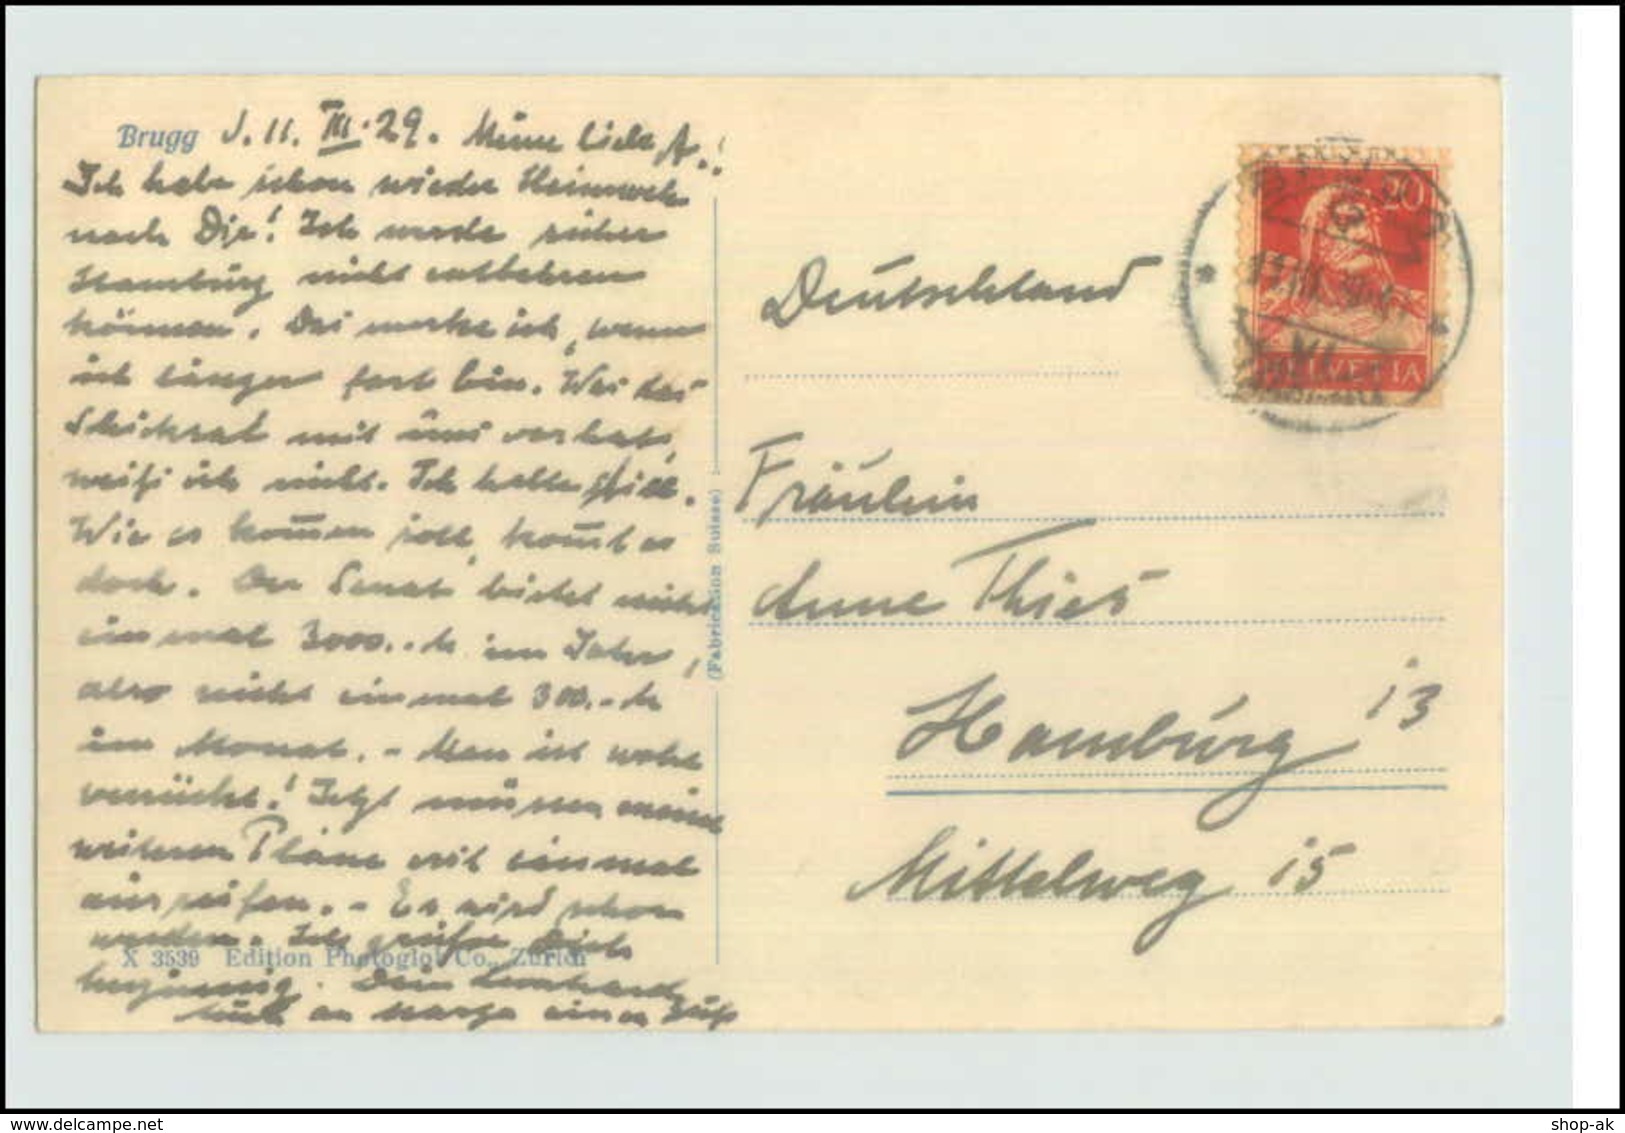 Brugg d. 11. III. 29. Meine liebe A.!
Ich habe schon wieder Heimweh
nach Dir! Ich werde sicher
Hamburg nicht entbehren
können. Das merke ich, wenn
ich länger fort bin. Was das
Schicksal mit uns vorhat,
weiß ich nicht. Ich halte still.
Wie es kom̄en soll, kom̄t es
doch. Der Senat bietet nicht
einmal 3000.- M im Jahr,
also nicht einmal 300.- M
im Monat. - Man ist wohl
verrückt! Jetzt müssen meine
weiteren Pläne erst einmal
ausreifen. - Es wird schon
werden. Ich grüße Dich
herzinnig. Dein Leonhard
auch an Marga einen Gruß
X 3539 Edition Photoglob Co., Zürich
(Fabrication Suisse)
20
HELVETIA
Deutschland
Fräulein
Anne Thies
Hamburg 13
Mittelweg 15
www.delcampe.net
shop-ak